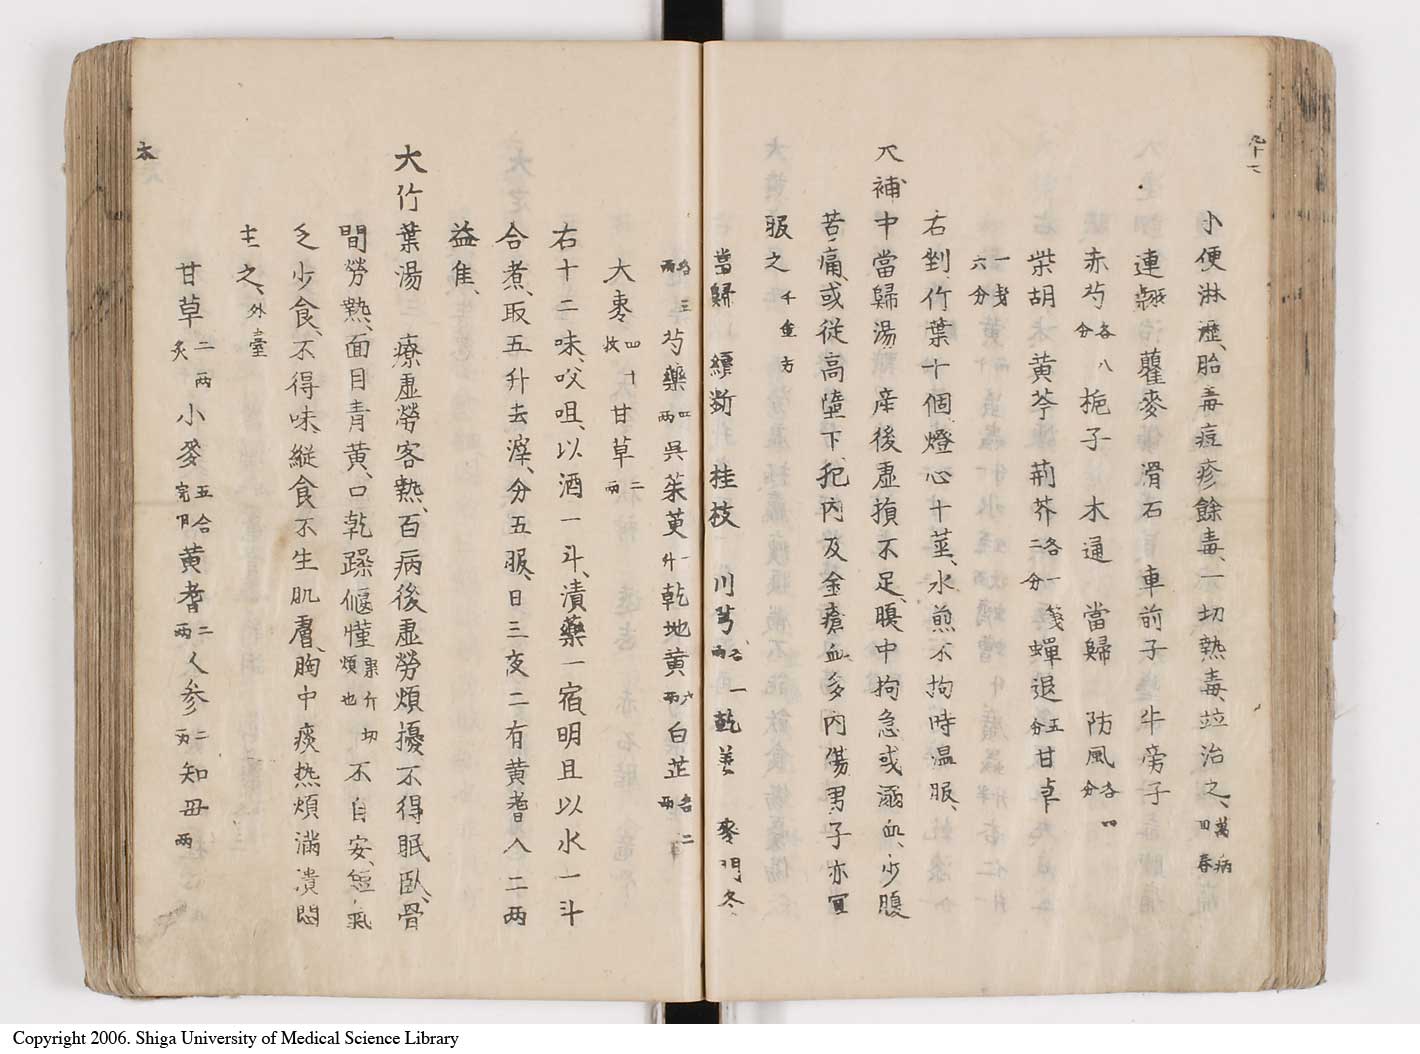 小便淋瀝、胎毒痘疹餘毒、一切熱毒、竝治之、萬病回春
連翹 瞿麥 滑石 車前子 牛旁子
赤芍各八分 梔子 木通 當歸 防風各四分
柴胡 黄芩 荊芥各一戔二分 蟬退五分 甘草
一戔六分
右剉竹葉十個、燈心十莖、水煎不拘時温服、
大補中當歸湯 産後虚損不足、腹中拘急、或溺血、少腹
苦痛、或從高墮下、犯内及金瘡血多内傷、男子亦宜
服之 千金方
當歸 續斷 桂枝 川芎 乾姜 麥門冬
各三兩 芍藥四兩 呉茱萸一升 乾地黄六兩 白芷各二兩
大棗四十枚 甘草二兩
右十二味、㕮咀、以酒一斗、漬藥一宿、明旦以水一斗
合煮、取五升去滓、分五服、日三夜二、有黄耆入二兩
益佳、
大竹葉湯 療虚勞客熱、百病後虚勞煩擾不得眠臥、骨
間勞熱、面目青黄、口乾躁、偃懂 不自安、短氣
乏少食、不得味、縱食不生肌膚、胸中痰热煩滿潰悶
主之、外臺
甘草二兩炙 小麥五合完用 黄耆二兩 人参二兩 知母二兩
大